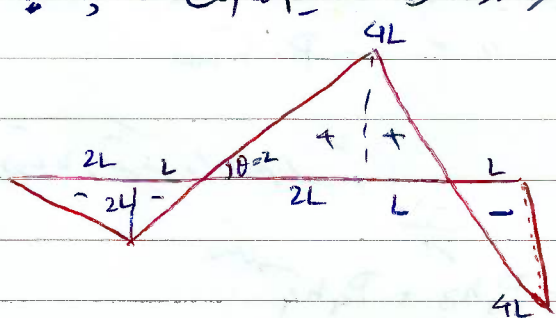 4L
+ +
2L L θ=2 L
- 2L - 2L L -
4L